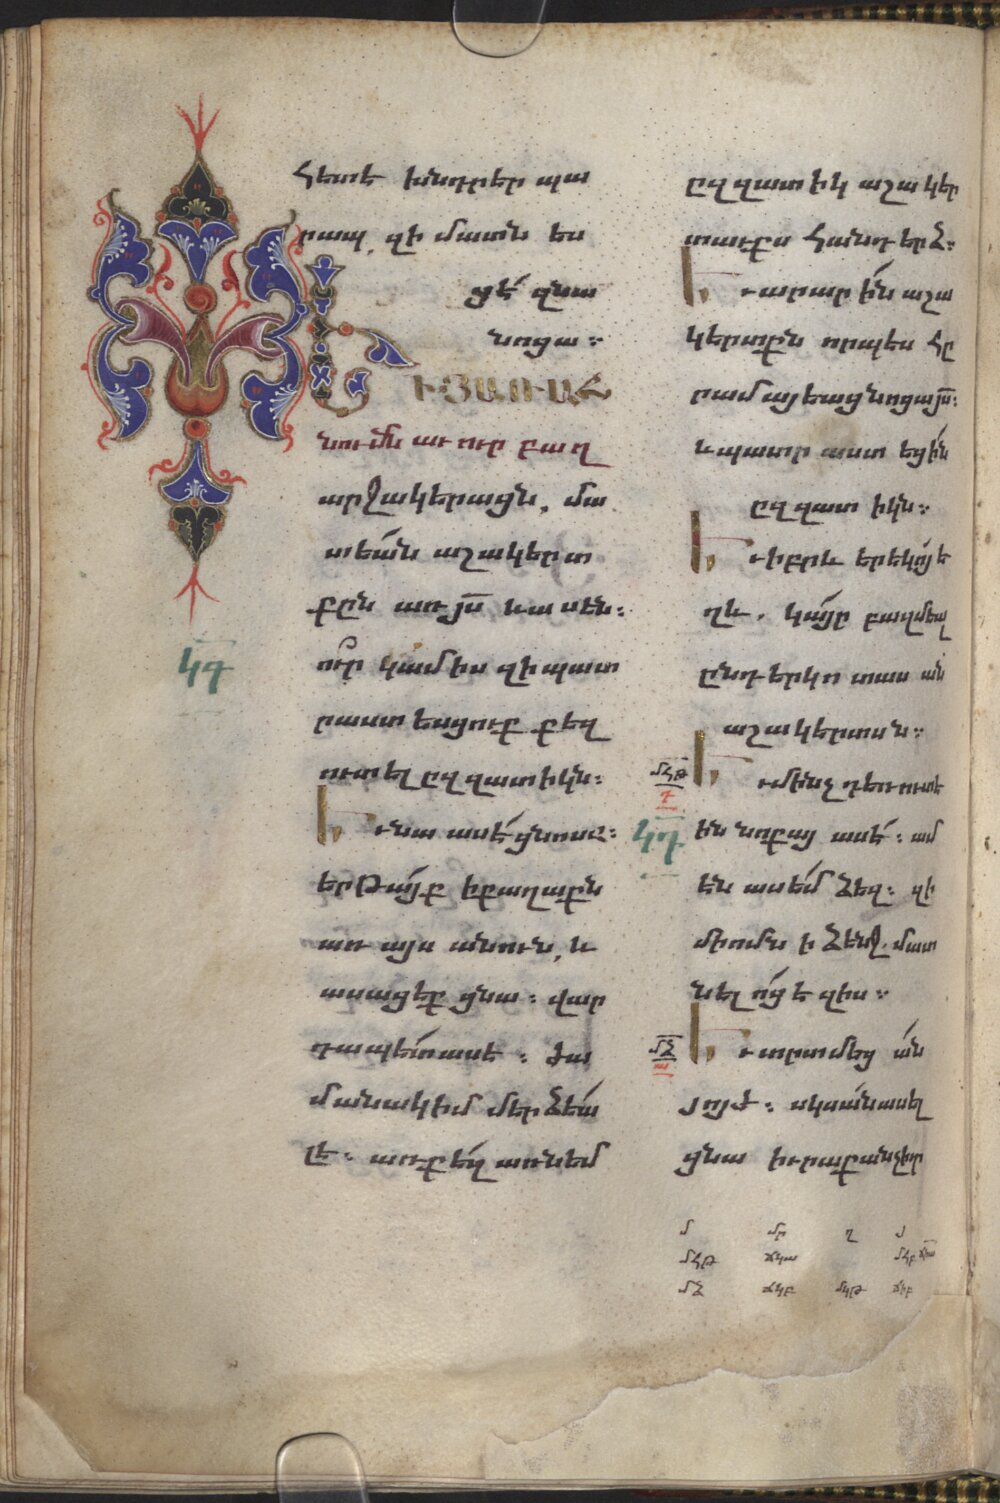 հետէ խնդրէր պա
րապ, զի մատն ես
ցէ զնա
նոցա։
ԵՒՅԱՌԱՋ
նումն աւուր բաղ
արջակերացն, մա
տեան աշակերտ
քըն առ յս եւ ասեն։
ուր կամիս զի պատ
րաստեսցուք քեզ
ուտել ըզզատիկն։
Եւ նա ասէ ցնոսա։
երթայք իքաղաքն
առ այս անուն, և
ասացէք ցնա։ վար
դապետ ասէ։ ժա
մանակ իմ մերձեա
լ է։ առ քեզ առնեմ
կգ
ըզզատիկ աշակեր
տաւքս հանդերձ։
Եւ արարին աշա
կերտքն որպէս հր
րամայեաց նոցա յս։
և պատրաստեցին
ըզզատիկն։
Եւ իբրև երեկոյ ե
ղև. կայր բազմեալ
ընդ երկոտասան
աշակերտսն։
Եւ մինչդեռ ուտէ
ին նոքայ ասէ։ ամ
էն ասեմ ձեզ։ զի
մի ոմն ի ձէնջ. մատ
նել ոց է զիս։
Եւ տրտմեցան
յոյժ։ սկսան ասել
ցնա իւրաքանչիւր
մհթ
դ
կդ
մձ
ա
մ մր ղ յ
մհթ ճկա մհբ ճիա
մձ ճկբ մկթ ճիբ